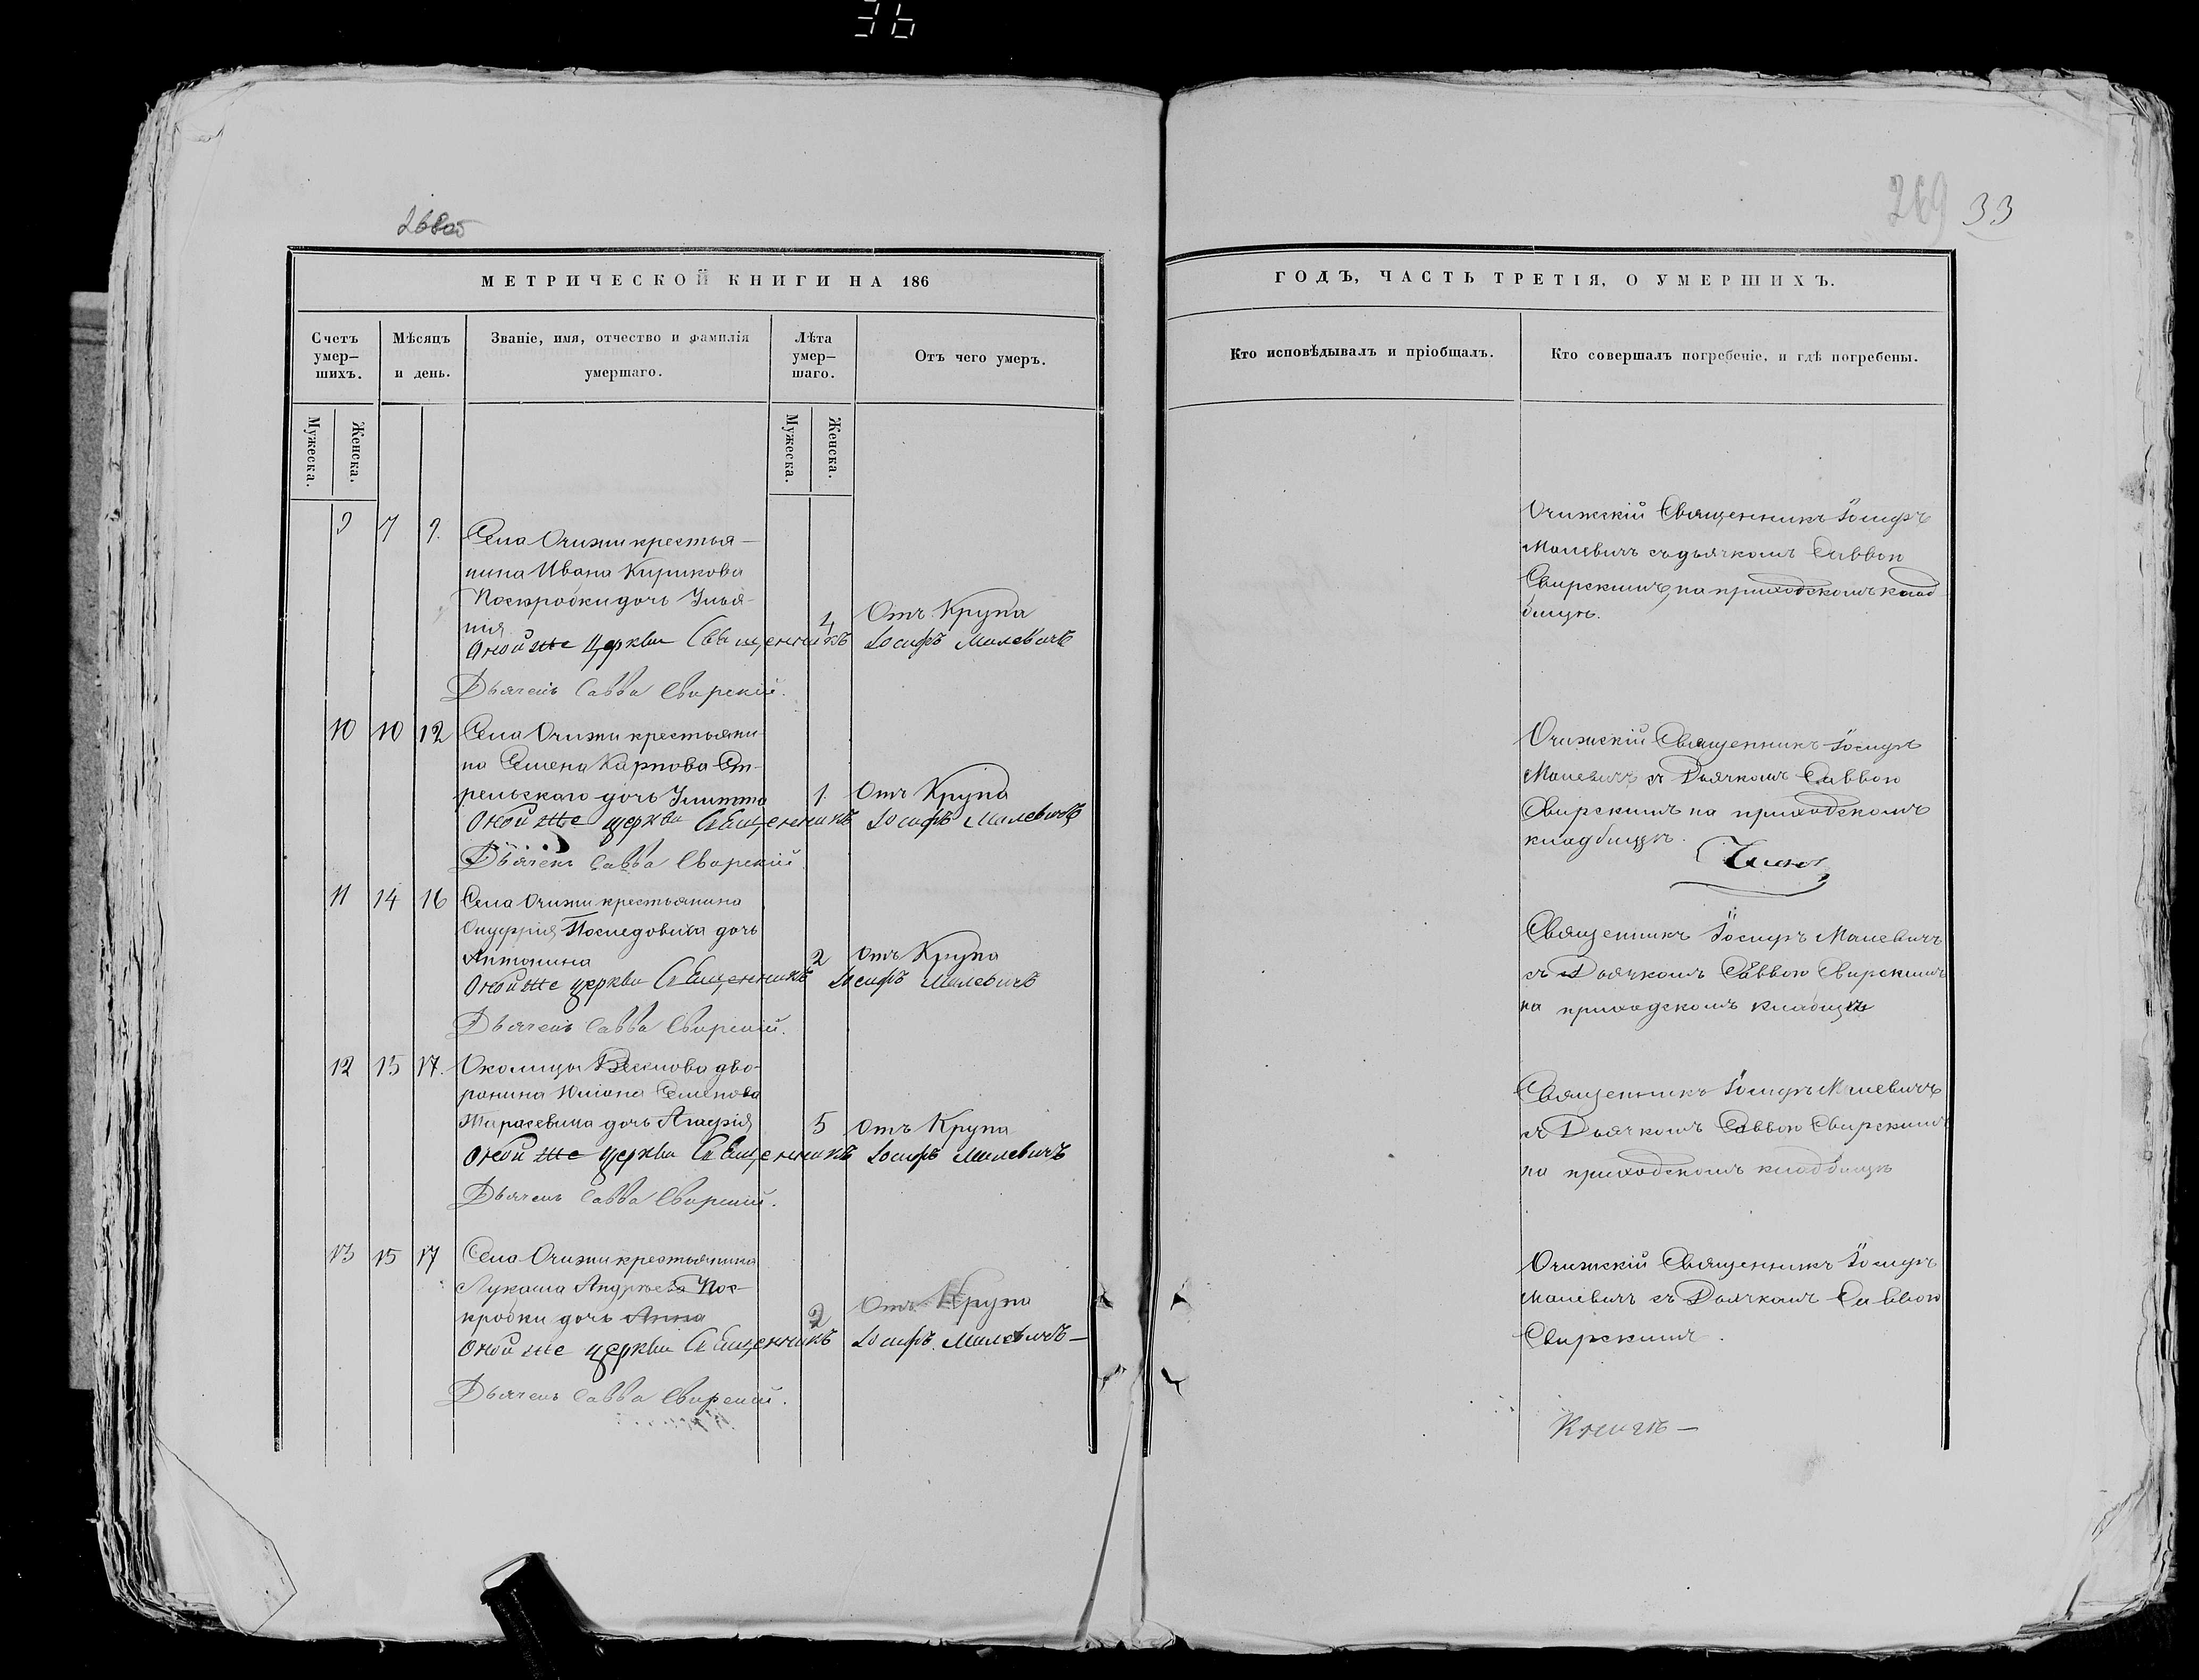 36
268об
269 33
МЕТРИЧЕСКОЙ КНИГИ НА 186
ГОДЪ, ЧАСТЬ ТРЕТІЯ, О УМЕРШИХЪ.
Счетъ умер-
шихъ.
Мѣсяцъ
и день.
Званіе, имя, отчество и фамилія
умершаго.
Лѣта
умер-
шаго.
Отъ чего умеръ.
Кто исповѣдывалъ и пріобщалъ.
Кто совершалъ погребеніе, и гдѣ погребены.
Мужеска.
Женска.
Мужеска.
Женска.
9 7 9.
Села Очижи крестья-
нина Ивана Кирикова
Поскробки дочь Улья-
нія
4 Отъ Крупа
Оной же Церкви Священникъ Іосифъ Малевичъ
Дьячекъ Савва Свирскій.
Очижскій Священникъ Іосифъ
Малевичъ съ дьячкомъ Саввою
Свирскимъ, на приходскомъ клад
бищѣ.
10 10 12
Села Очижи крестьяни
на Семена Карпова
рельскаго дочь Улитта
1. Отъ Крупа
Оной же церкви Священникъ Іосифъ Малевичъ
Дьячекъ Савва Свирскій
Очижскій Священникъ Іосифъ
Малевичъ съ Дьячкомъ Саввою
Свирскимъ на приходскомъ
кладбищѣ.
11 14 16
Села Очижи крестьянина
Онуфрія Последовича дочь
Антонина
2 Отъ Крупа
Оной же церкви Священникъ Іосифъ Малевичъ
Дьячекъ Савва Свирскій.
Священникъ Іосифъ Малевичъ
съ Дьячкомъ Саввою Свирскимъ
на приходскомъ кладбищѣ
12 15 17.
Околицы дво-
рянина Юліана Семенова
Тарасевича дочь Агафія
5 Отъ Крупа
Оной же церкви Священникъ Іосифъ Малевичъ
Дьячекъ Савва Свирскій.
Священникъ Іосифъ Малевичъ
съ Дьячкомъ Саввою Свирскимъ
на приходскомъ кладбищѣ
13 15 17
Села Очижи крестьянина
Лукаша Андреева Пос-
кробки дочь Анна
2 Отъ Крупа
Оной же церкви Священникъ Іосифъ Малевичъ —
Дьячекъ Савва Свирскій.
Очижскій Священникъ Іосифъ
Малевичъ съ Дьячкомъ Саввою
Свирскимъ.